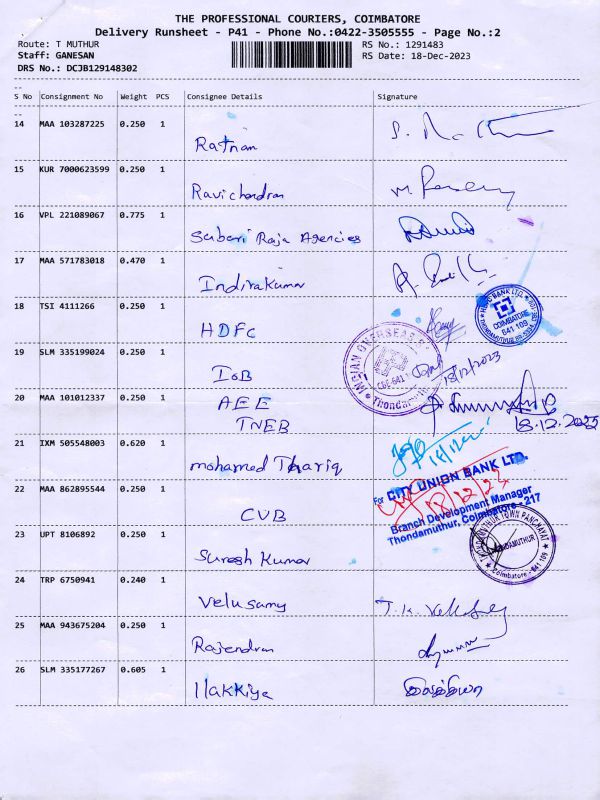 THE PROFESSIONAL COURIERS, COIMBATORE
Delivery Runsheet - P41 - Phone No.:0422-3505555 - Page No.:2
Route: T MUTHUR RS No.: 1291483
Staff: GANESAN RS Date: 18-Dec-2023
DRS No.: DCJB129148302
S No Consignment No Weight PCS Consignee Details Signature
14 MAA 103287225 0.250 1
Ratnam
15 KUR 7000623599 0.250 1
Ravichandran
16 VPL 221089067 0.775 1
Sabari Raja Agencies
17 MAA 571783018 0.470 1
Indirakumar
18 TSI 4111266 0.250 1
HDFC
HDFC BANK LTD.
COIMBATORE
641 109
19 SLM 335199024 0.250 1
IOB
INDIAN OVERSEAS
CBE-641
Thondamuthur
18/12/2023
20 MAA 101012337 0.250 1
AEE
TNEB
18.12.2023
21 IXM 505548003 0.620 1
mohamed Thariq
22 MAA 862895544 0.250 1
CUB
For CITY UNION BANK LTD.
18/12/23
Branch Development Manager
Thondamuthur, Coimbatore - 217
23 UPT 8106892 0.250 1
Suresh Kumar
THONDAMUTHUR TOWN PANCHAYAT
Coimbatore - 641 109
24 TRP 6750941 0.240 1
Velusamy
25 MAA 943675204 0.250 1
Rajendran
26 SLM 335177267 0.605 1
Ilakkiya இலக்கியா